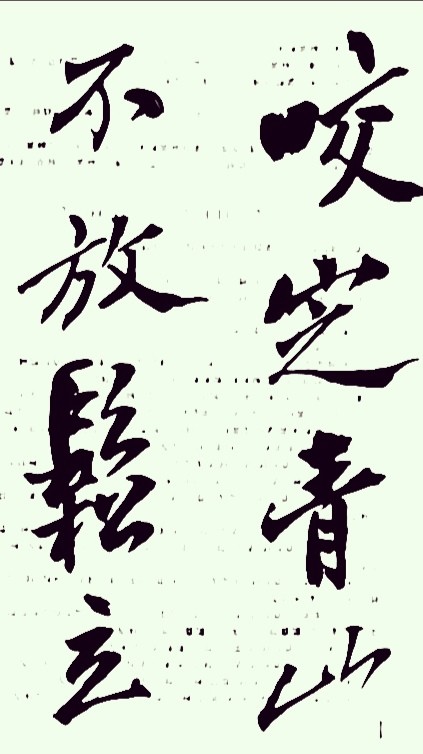 咬定青山
不放鬆立